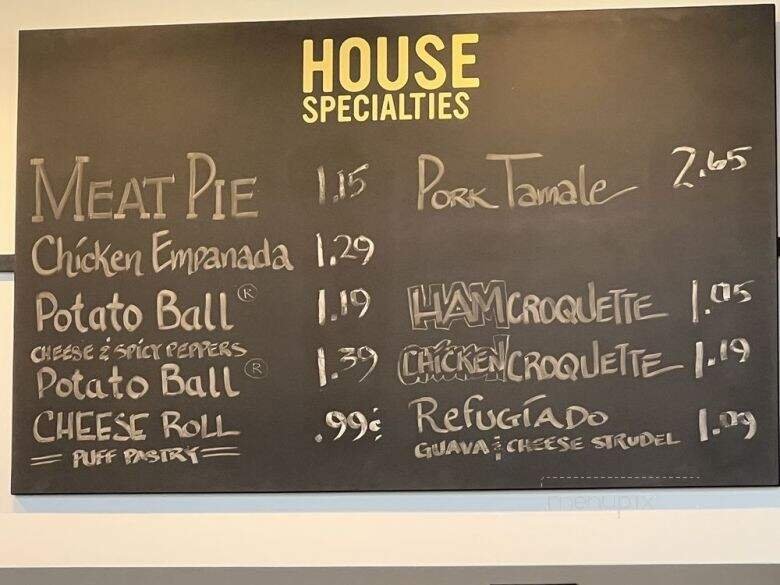 HOUSE
SPECIALTIES
MEAT PIE 1.15
Chicken Empanada 1.29
Potato Ball® 1.19
CHEESE & SPICY PEPPERS
Potato Ball® 1.39
CHEESE ROLL .99¢
PUFF PASTRY
Pork Tamale 2.65
HAM CROQUETTE 1.05
CHICKEN CROQUETTE 1.19
REFUGÍADO 1.09
GUAVA & CHEESE STRUDEL
menupix